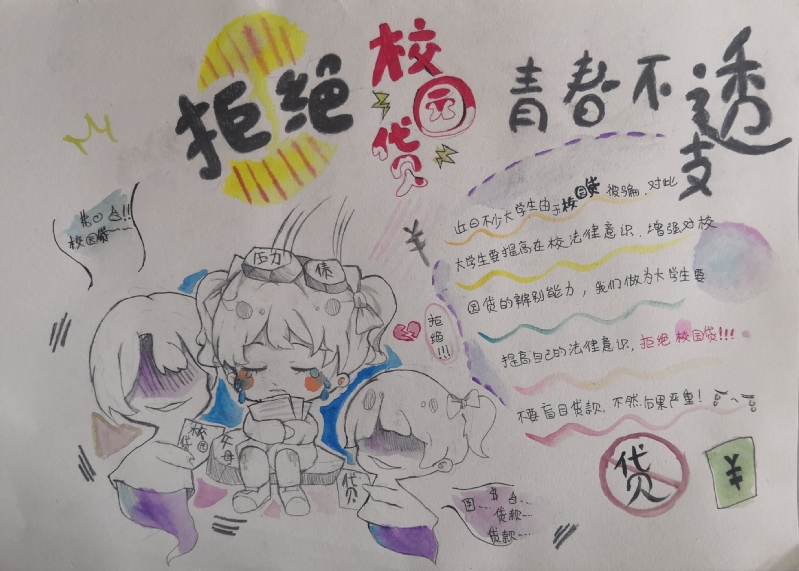 拒绝
校园贷
青春不透支
近日不少大学生由于校园贷被骗，对此
大学生要提高在校法律意识，增强对校
园贷的辨别能力，我们做为大学生要
提高自己的法律意识，拒绝校园贷!!!
不要盲目贷款，不然后果严重!
校园贷…
¥
拒绝!!!
压力
债
校园贷
父母
贷
贷款…
贷款…
贷
¥